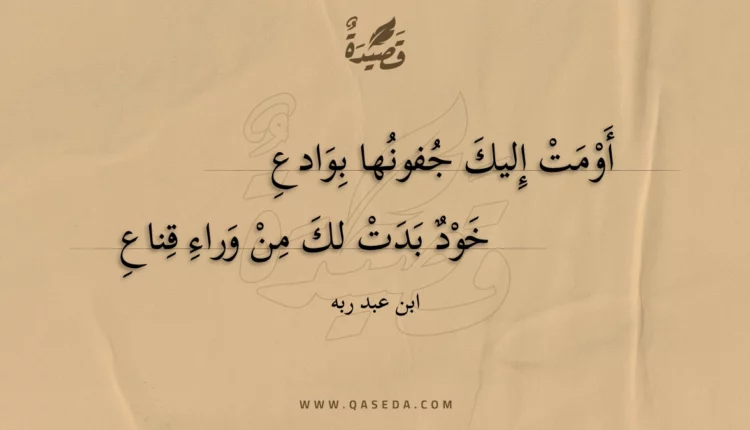 قَصِيْدَةٌ
أَوْمَتْ إِليكَ جُفونُها بِوَادعِ
خَوْدٌ بَدَتْ لكَ مِنْ وَراءِ قِناعِ
ابن عبد ربه
WWW.QASEDA.COM